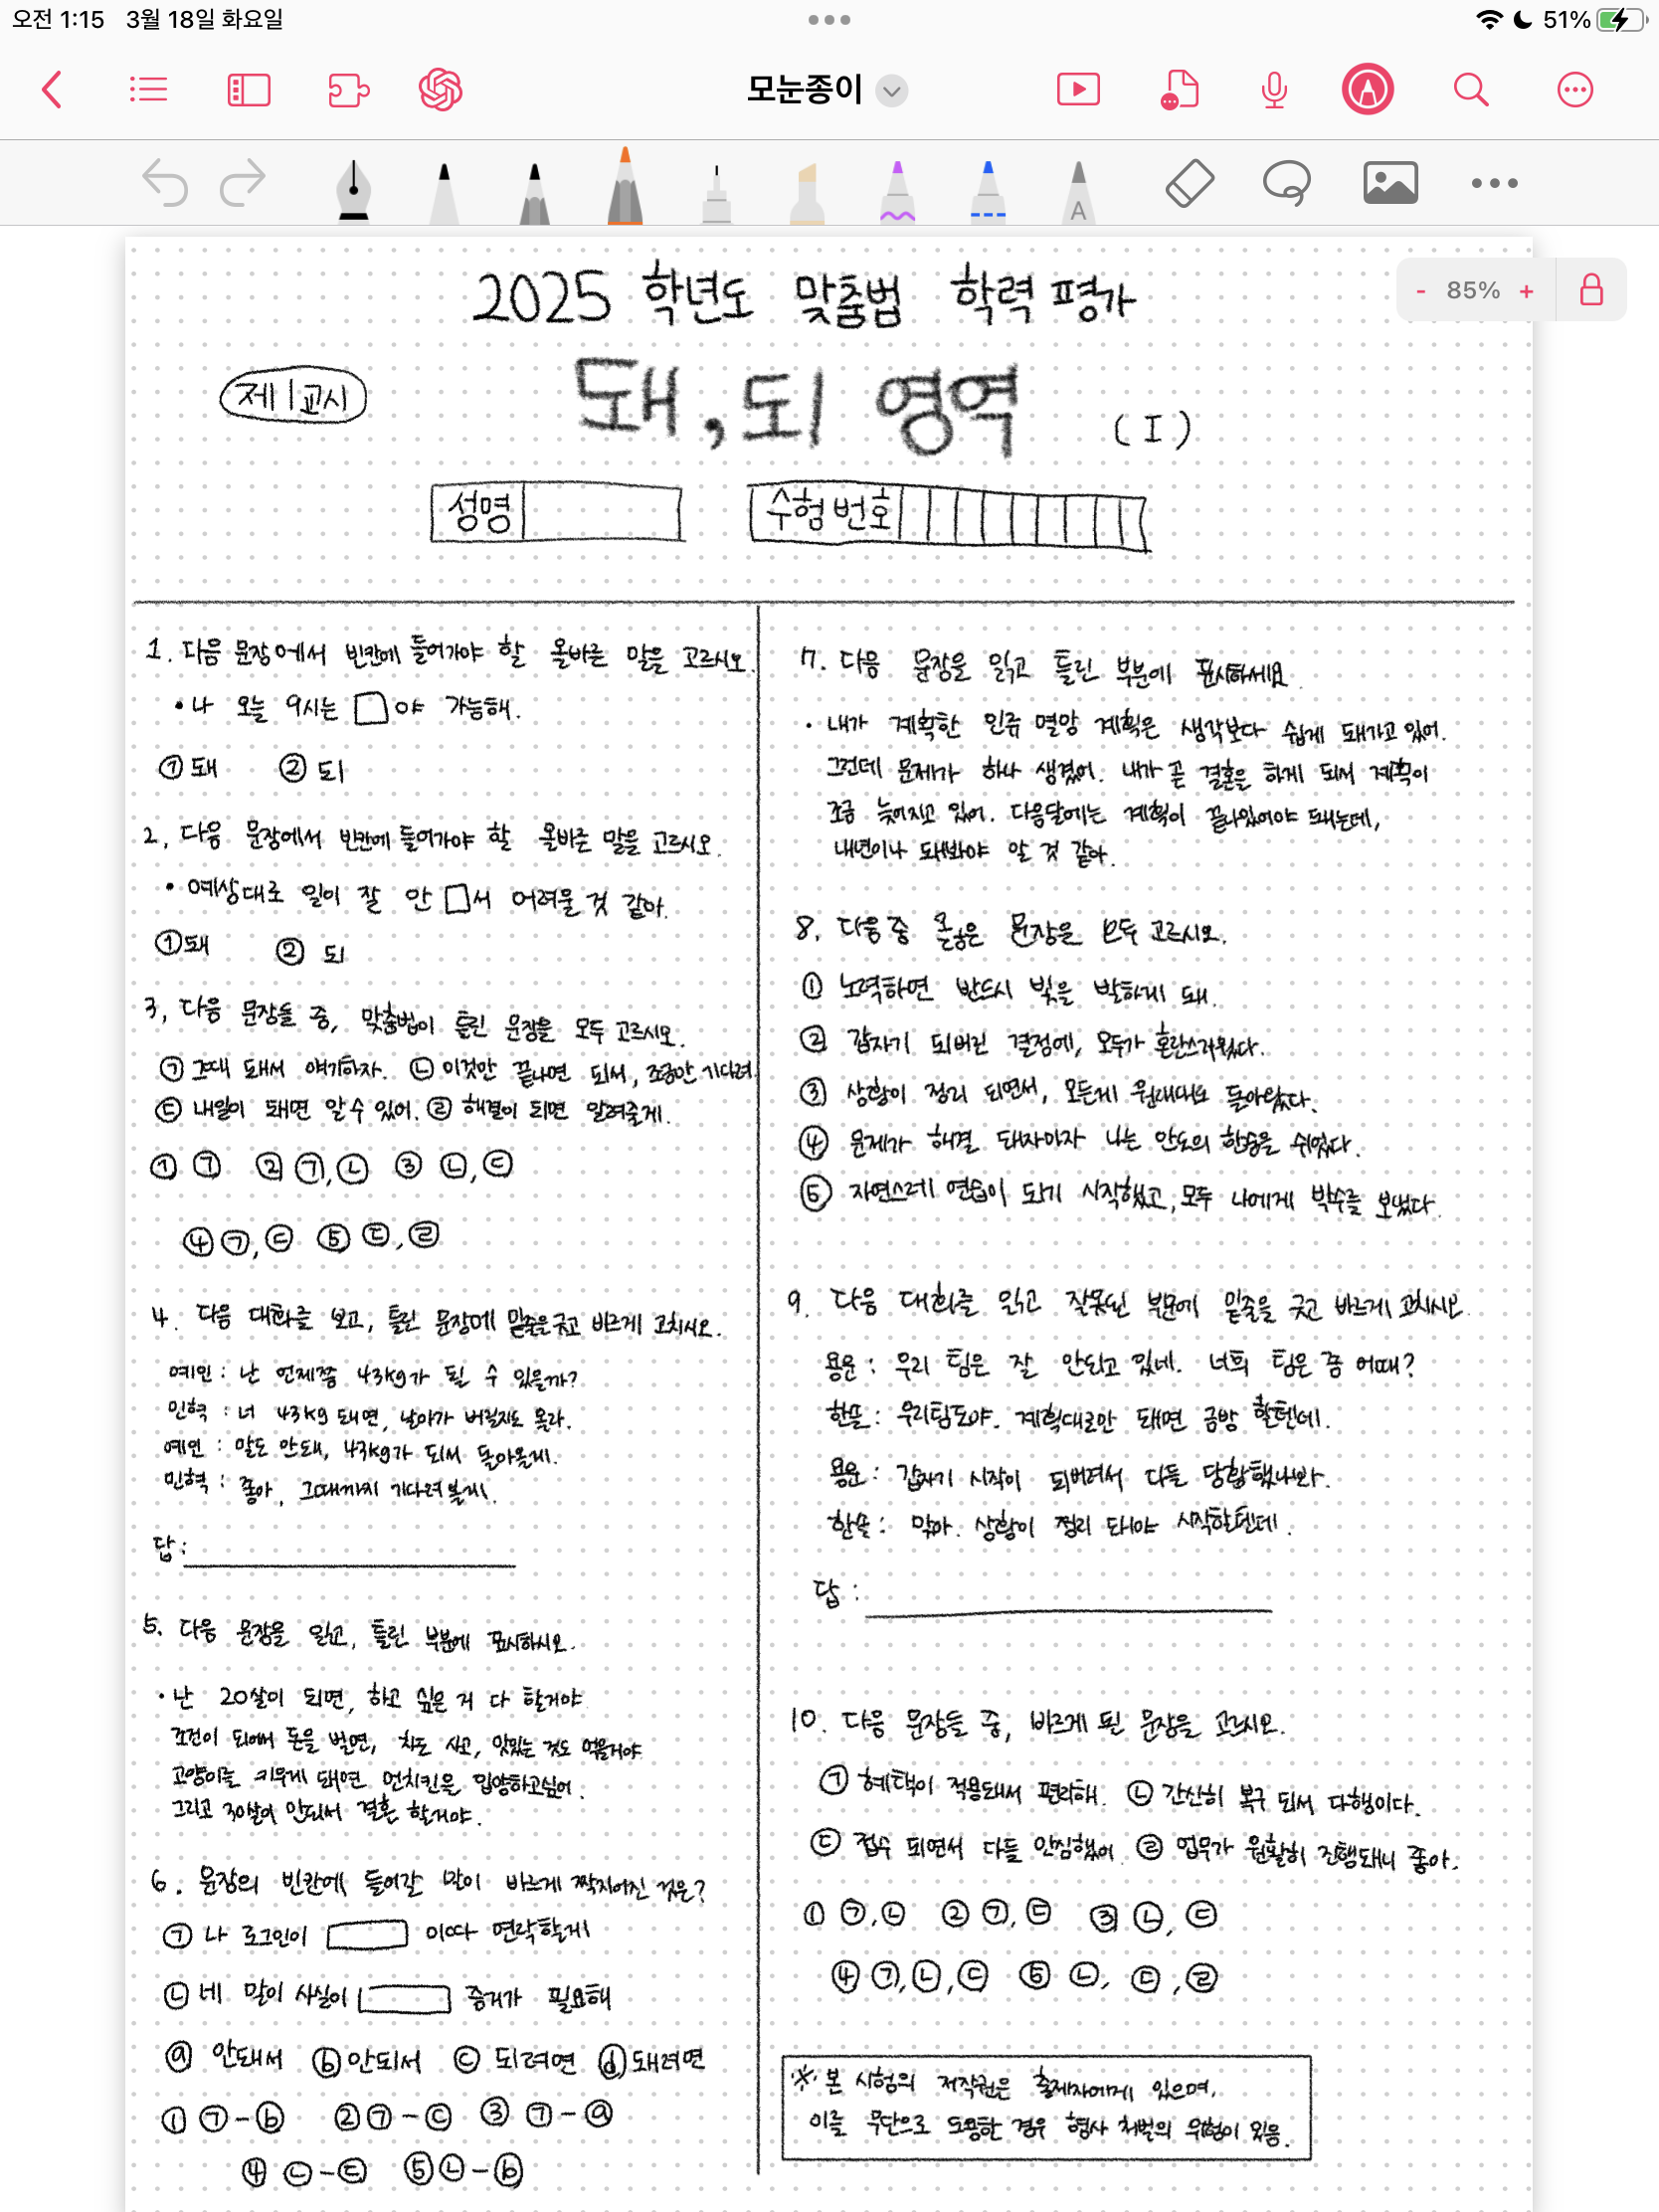 오전 1:15 3월 18일 화요일
51%
모눈종이
A
- 85% +
2025 학년도 맞춤법 학력 평가
제 1 교시
돼, 되 영역
(I)
성명
수험 번호
1. 다음 문장에서 빈칸에 들어가야 할 올바른 말을 고르시오.
• 나 오늘 9시는 □야 가능해.
① 돼 ② 되
2. 다음 문장에서 빈칸에 들어가야 할 올바른 말을 고르시오.
• 예상대로 일이 잘 안 □서 어려울 것 같아.
① 돼 ② 되
3. 다음 문장들 중, 맞춤법이 틀린 문장을 모두 고르시오.
㉠ 그때 돼서 얘기하자. ㉡ 이것만 끝나면 되서, 조금만 기다려.
㉢ 내일이 돼면 알 수 있어. ㉣ 해결이 되면 알려줄게.
① ㉠ ② ㉠, ㉡ ③ ㉡, ㉢
④ ㉠, ㉢ ⑤ ㉢, ㉣
4. 다음 대화를 보고, 틀린 문장에 밑줄을 긋고 바르게 고치시오.
예인 : 난 언제쯤 43kg가 될 수 있을까?
민혁 : 너 43kg 돼면, 날아가 버릴지도 몰라.
예인 : 말도 안돼, 43kg가 되서 돌아올게.
민혁 : 좋아, 그때까지 기다려볼게.
답 :
5. 다음 문장을 읽고, 틀린 부분에 표시하시오.
• 난 20살이 되면, 하고 싶은 거 다 할거야
조건이 되어서 돈을 벌면, 차도 사고, 맛있는 것도 먹을거야
고양이를 키우게 돼면 먼치킨을 입양하고싶어.
그리고 30살이 안되서 결혼 할거야.
6. 문장의 빈칸에 들어갈 말이 바르게 짝지어진 것은?
㉠ 나 로그인이 □ 이따 연락할게
㉡ 네 말이 사실이 □ 증거가 필요해
ⓐ 안돼서 ⓑ 안되서 ⓒ 되려면 ⓓ 돼려면
① ㉠-ⓑ ② ㉠-ⓒ ③ ㉠-ⓐ
④ ㉡-㉢ ⑤ ㉡-ⓑ
7. 다음 문장을 읽고 틀린 부분에 표시하세요.
• 내가 계획한 인류 멸망 계획은 생각보다 쉽게 돼가고 있어.
그런데 문제가 하나 생겼어. 내가 곧 결혼을 하게 되서 계획이
조금 늦어지고 있어. 다음달에는 계획이 끝나있어야 돼는데,
내년이나 돼봐야 알 것 같아.
8. 다음 중 옳은 문장을 모두 고르시오.
① 노력하면 반드시 빛을 발하게 돼.
② 갑자기 되버린 결정에, 모두가 혼란스러웠다.
③ 상황이 정리 되면서, 모든게 원래대로 돌아왔다.
④ 문제가 해결 돼자마자 나는 안도의 한숨을 쉬었다.
⑤ 자연스레 연습이 되기 시작했고, 모두 나에게 박수를 보냈다.
9. 다음 대화를 읽고 잘못된 부분에 밑줄을 긋고 바르게 고치시오.
용운 : 우리 팀은 잘 안되고 있네. 너희 팀은 좀 어때?
한솔 : 우리팀도야. 계획대로만 돼면 금방 할텐데.
용운 : 갑자기 시작이 되버려서 다들 당황했나봐.
한솔 : 맞아. 상황이 정리 돼야 시작할텐데.
답 :
10. 다음 문장들 중, 바르게 된 문장을 고르시오.
㉠ 혜택이 적용돼서 편리해. ㉡ 간신히 복구 되서 다행이다.
㉢ 접수 되면서 다들 안심했어. ㉣ 업무가 원활히 진행돼니 좋아.
① ㉠, ㉡ ② ㉠, ㉢ ③ ㉡, ㉢
④ ㉠, ㉡, ㉢ ⑤ ㉡, ㉢, ㉣
※ 본 시험의 저작권은 출제자에게 있으며,
이를 무단으로 도용한 경우 형사 처벌의 위험이 있음.